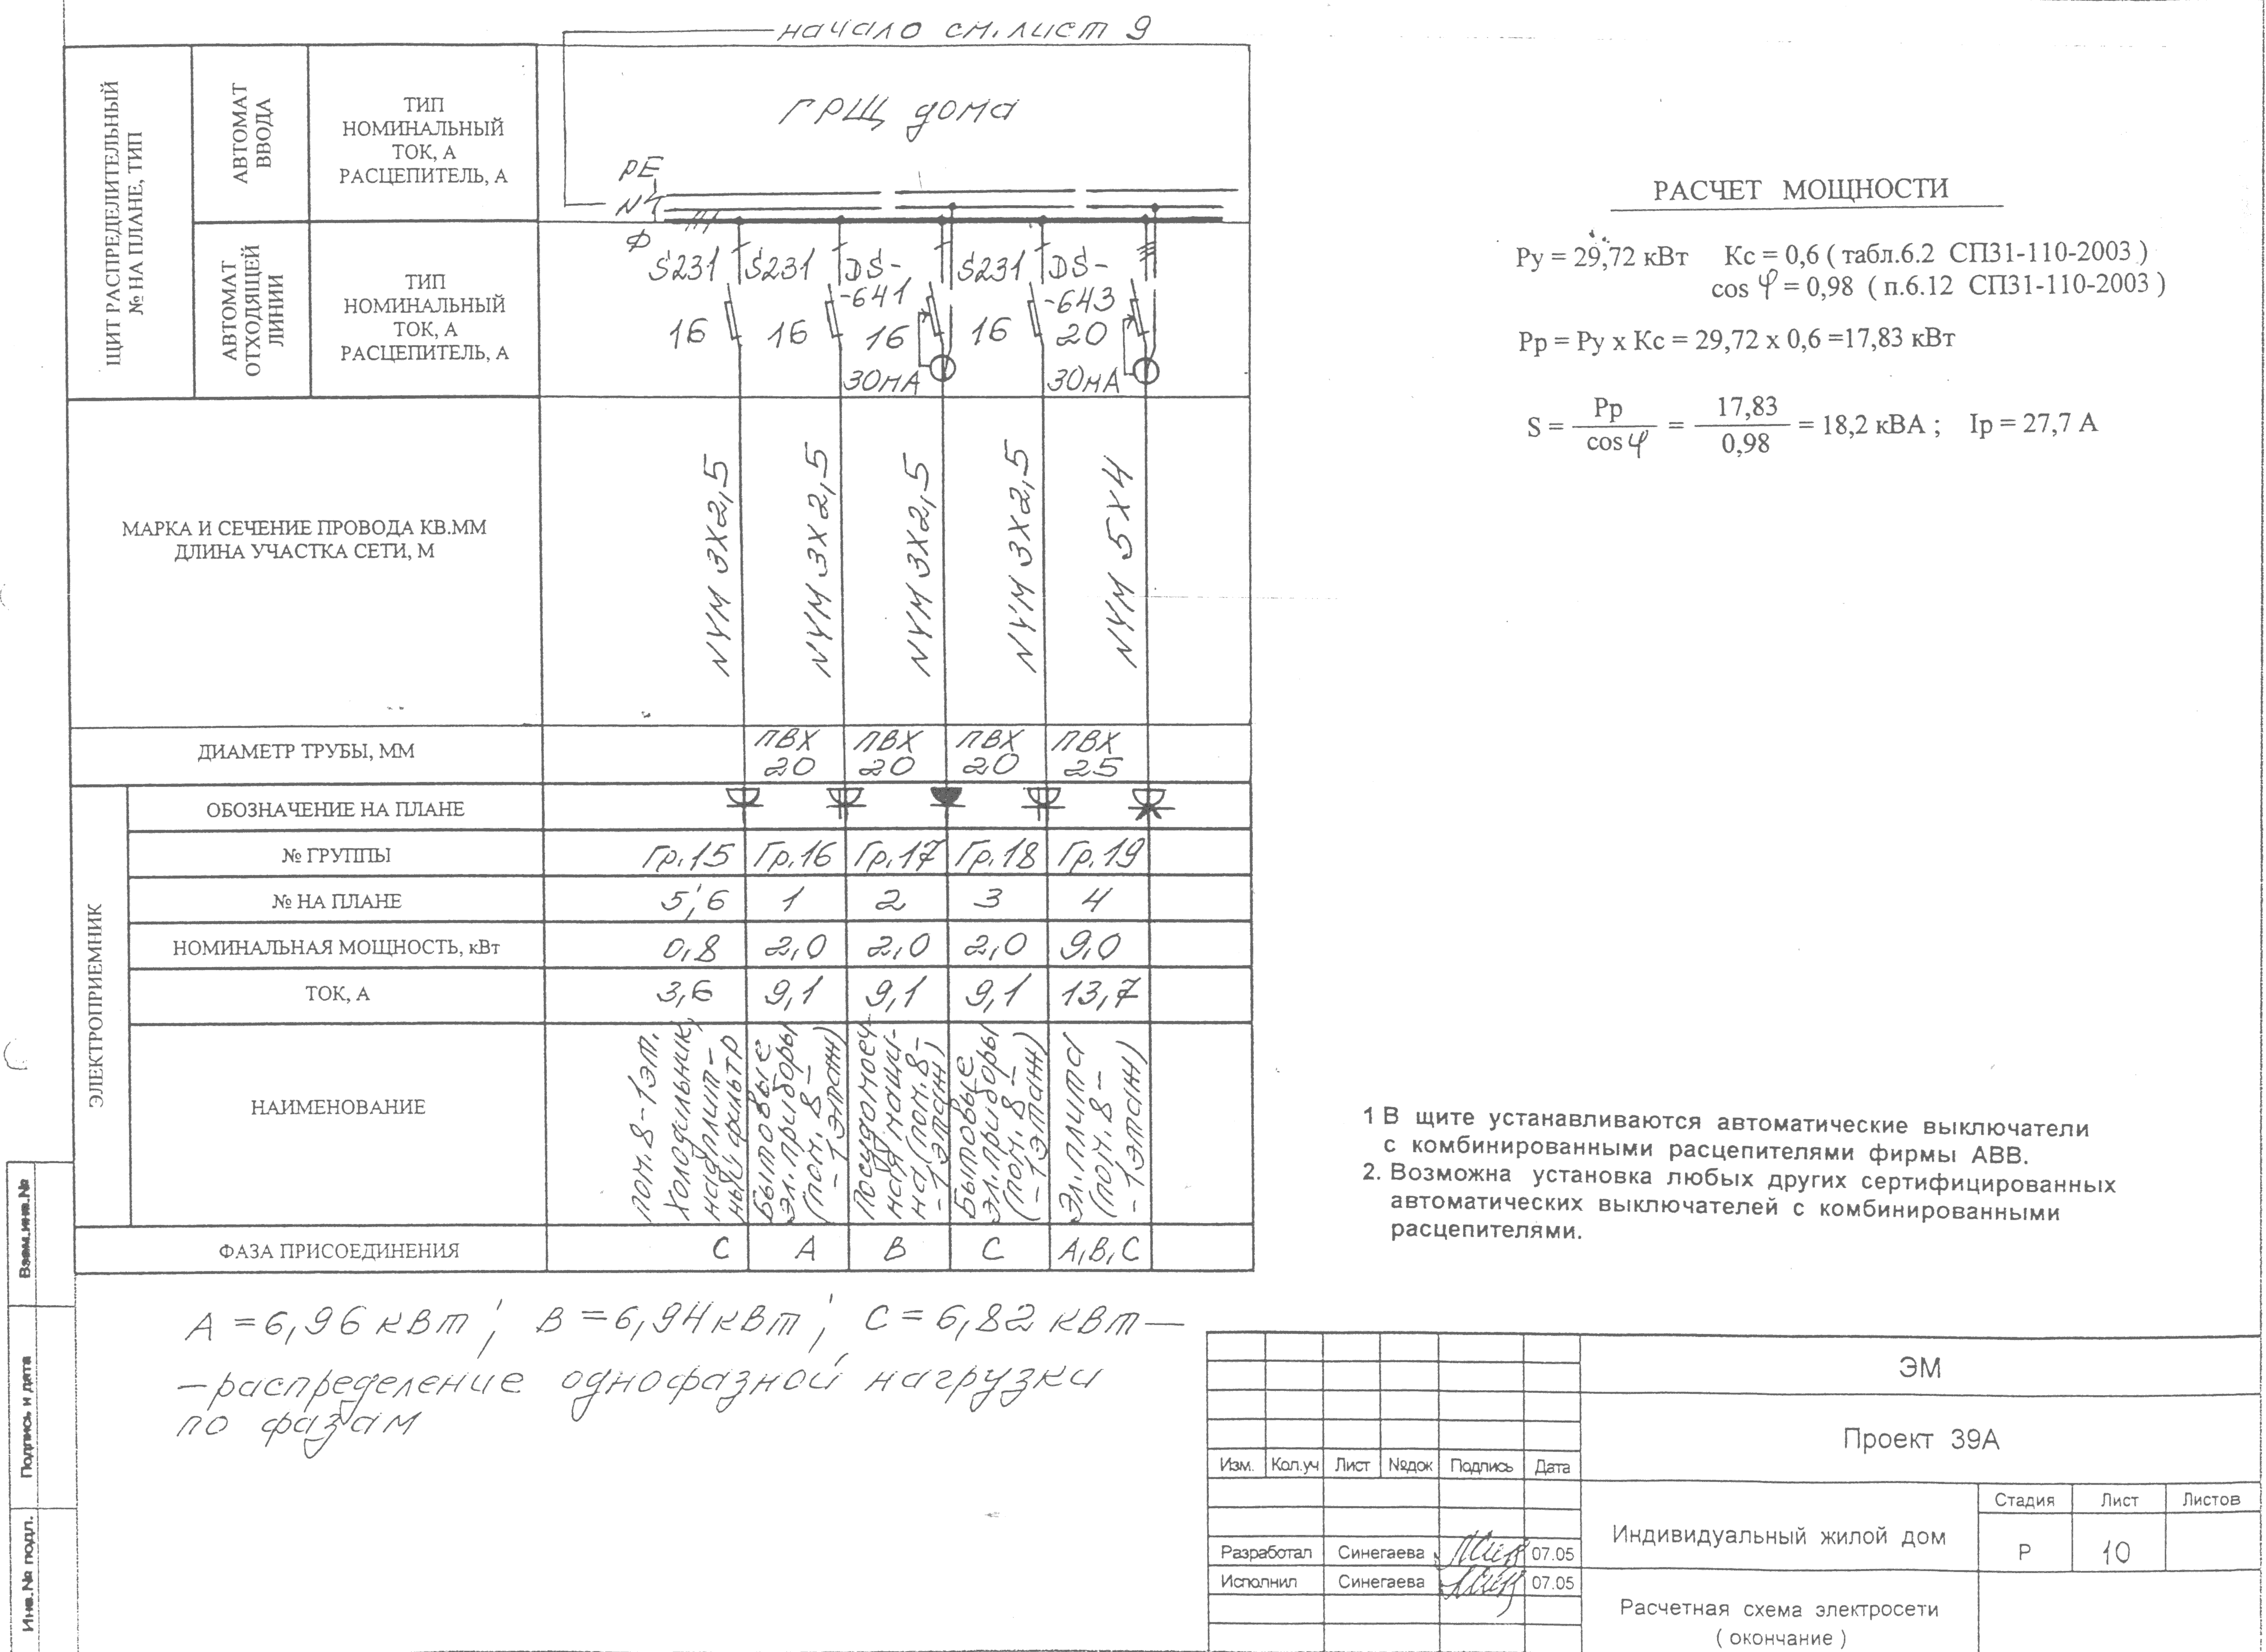 начало см. лист 9
ЩИТ РАСПРЕДЕЛИТЕЛЬНЫЙ
№ НА ПЛАНЕ, ТИП
АВТОМАТ
ВВОДА
ТИП
НОМИНАЛЬНЫЙ
ТОК, А
РАСЦЕПИТЕЛЬ, А
ГРЩ дома
PE
N
Ф
АВТОМАТ
ОТХОДЯЩЕЙ
ЛИНИИ
ТИП
НОМИНАЛЬНЫЙ
ТОК, А
РАСЦЕПИТЕЛЬ, А
S231 S231 DS- S231 DS-
-641 -643
16 16 16 16 20
30мА 30мА
МАРКА И СЕЧЕНИЕ ПРОВОДА КВ.ММ
ДЛИНА УЧАСТКА СЕТИ, М
NYM 3х2,5
NYM 3х2,5
NYM 3х2,5
NYM 3х2,5
NYM 5х4
ДИАМЕТР ТРУБЫ, ММ
ПВХ ПВХ ПВХ ПВХ
20 20 20 25
ЭЛЕКТРОПРИЕМНИК
ОБОЗНАЧЕНИЕ НА ПЛАНЕ
№ ГРУППЫ Гр.15 Гр.16 Гр.17 Гр.18 Гр.19
№ НА ПЛАНЕ 5,6 1 2 3 4
НОМИНАЛЬНАЯ МОЩНОСТЬ, кВт 0,8 2,0 2,0 2,0 9,0
ТОК, А 3,6 9,1 9,1 9,1 13,7
НАИМЕНОВАНИЕ
пом.8-1эт.
Холодильник,
надплит-
ный фильтр
Бытовые
эл.приборы
(пом.8-
-1этаж)
Посудомоеч-
ная маши-
на (пом.8-
-1этаж)
Бытовые
эл.приборы
(пом.8-
-1этаж)
Эл.плита
(пом.8-
-1этаж)
ФАЗА ПРИСОЕДИНЕНИЯ С А В С А,В,С
А = 6,96 кВт; В = 6,94 кВт; С = 6,82 кВт —
— распределение однофазной нагрузки
по фазам
РАСЧЕТ МОЩНОСТИ
Ру = 29,72 кВт Кс = 0,6 ( табл.6.2 СП31-110-2003 )
cos φ = 0,98 ( п.6.12 СП31-110-2003 )
Рр = Ру х Кс = 29,72 х 0,6 =17,83 кВт
S = Рр / cos φ = 17,83 / 0,98 = 18,2 кВА ; Iр = 27,7 А
1 В щите устанавливаются автоматические выключатели
с комбинированными расцепителями фирмы АВВ.
2. Возможна установка любых других сертифицированных
автоматических выключателей с комбинированными
расцепителями.
Взам.инв.№
Подпись и дата
Инв.№ подл.
ЭМ
Проект 39А
Изм. Кол.уч Лист №док Подпись Дата
Индивидуальный жилой дом
Стадия Лист Листов
Р 10
Разработал Синегаева 07.05
Исполнил Синегаева 07.05
Расчетная схема электросети
( окончание )